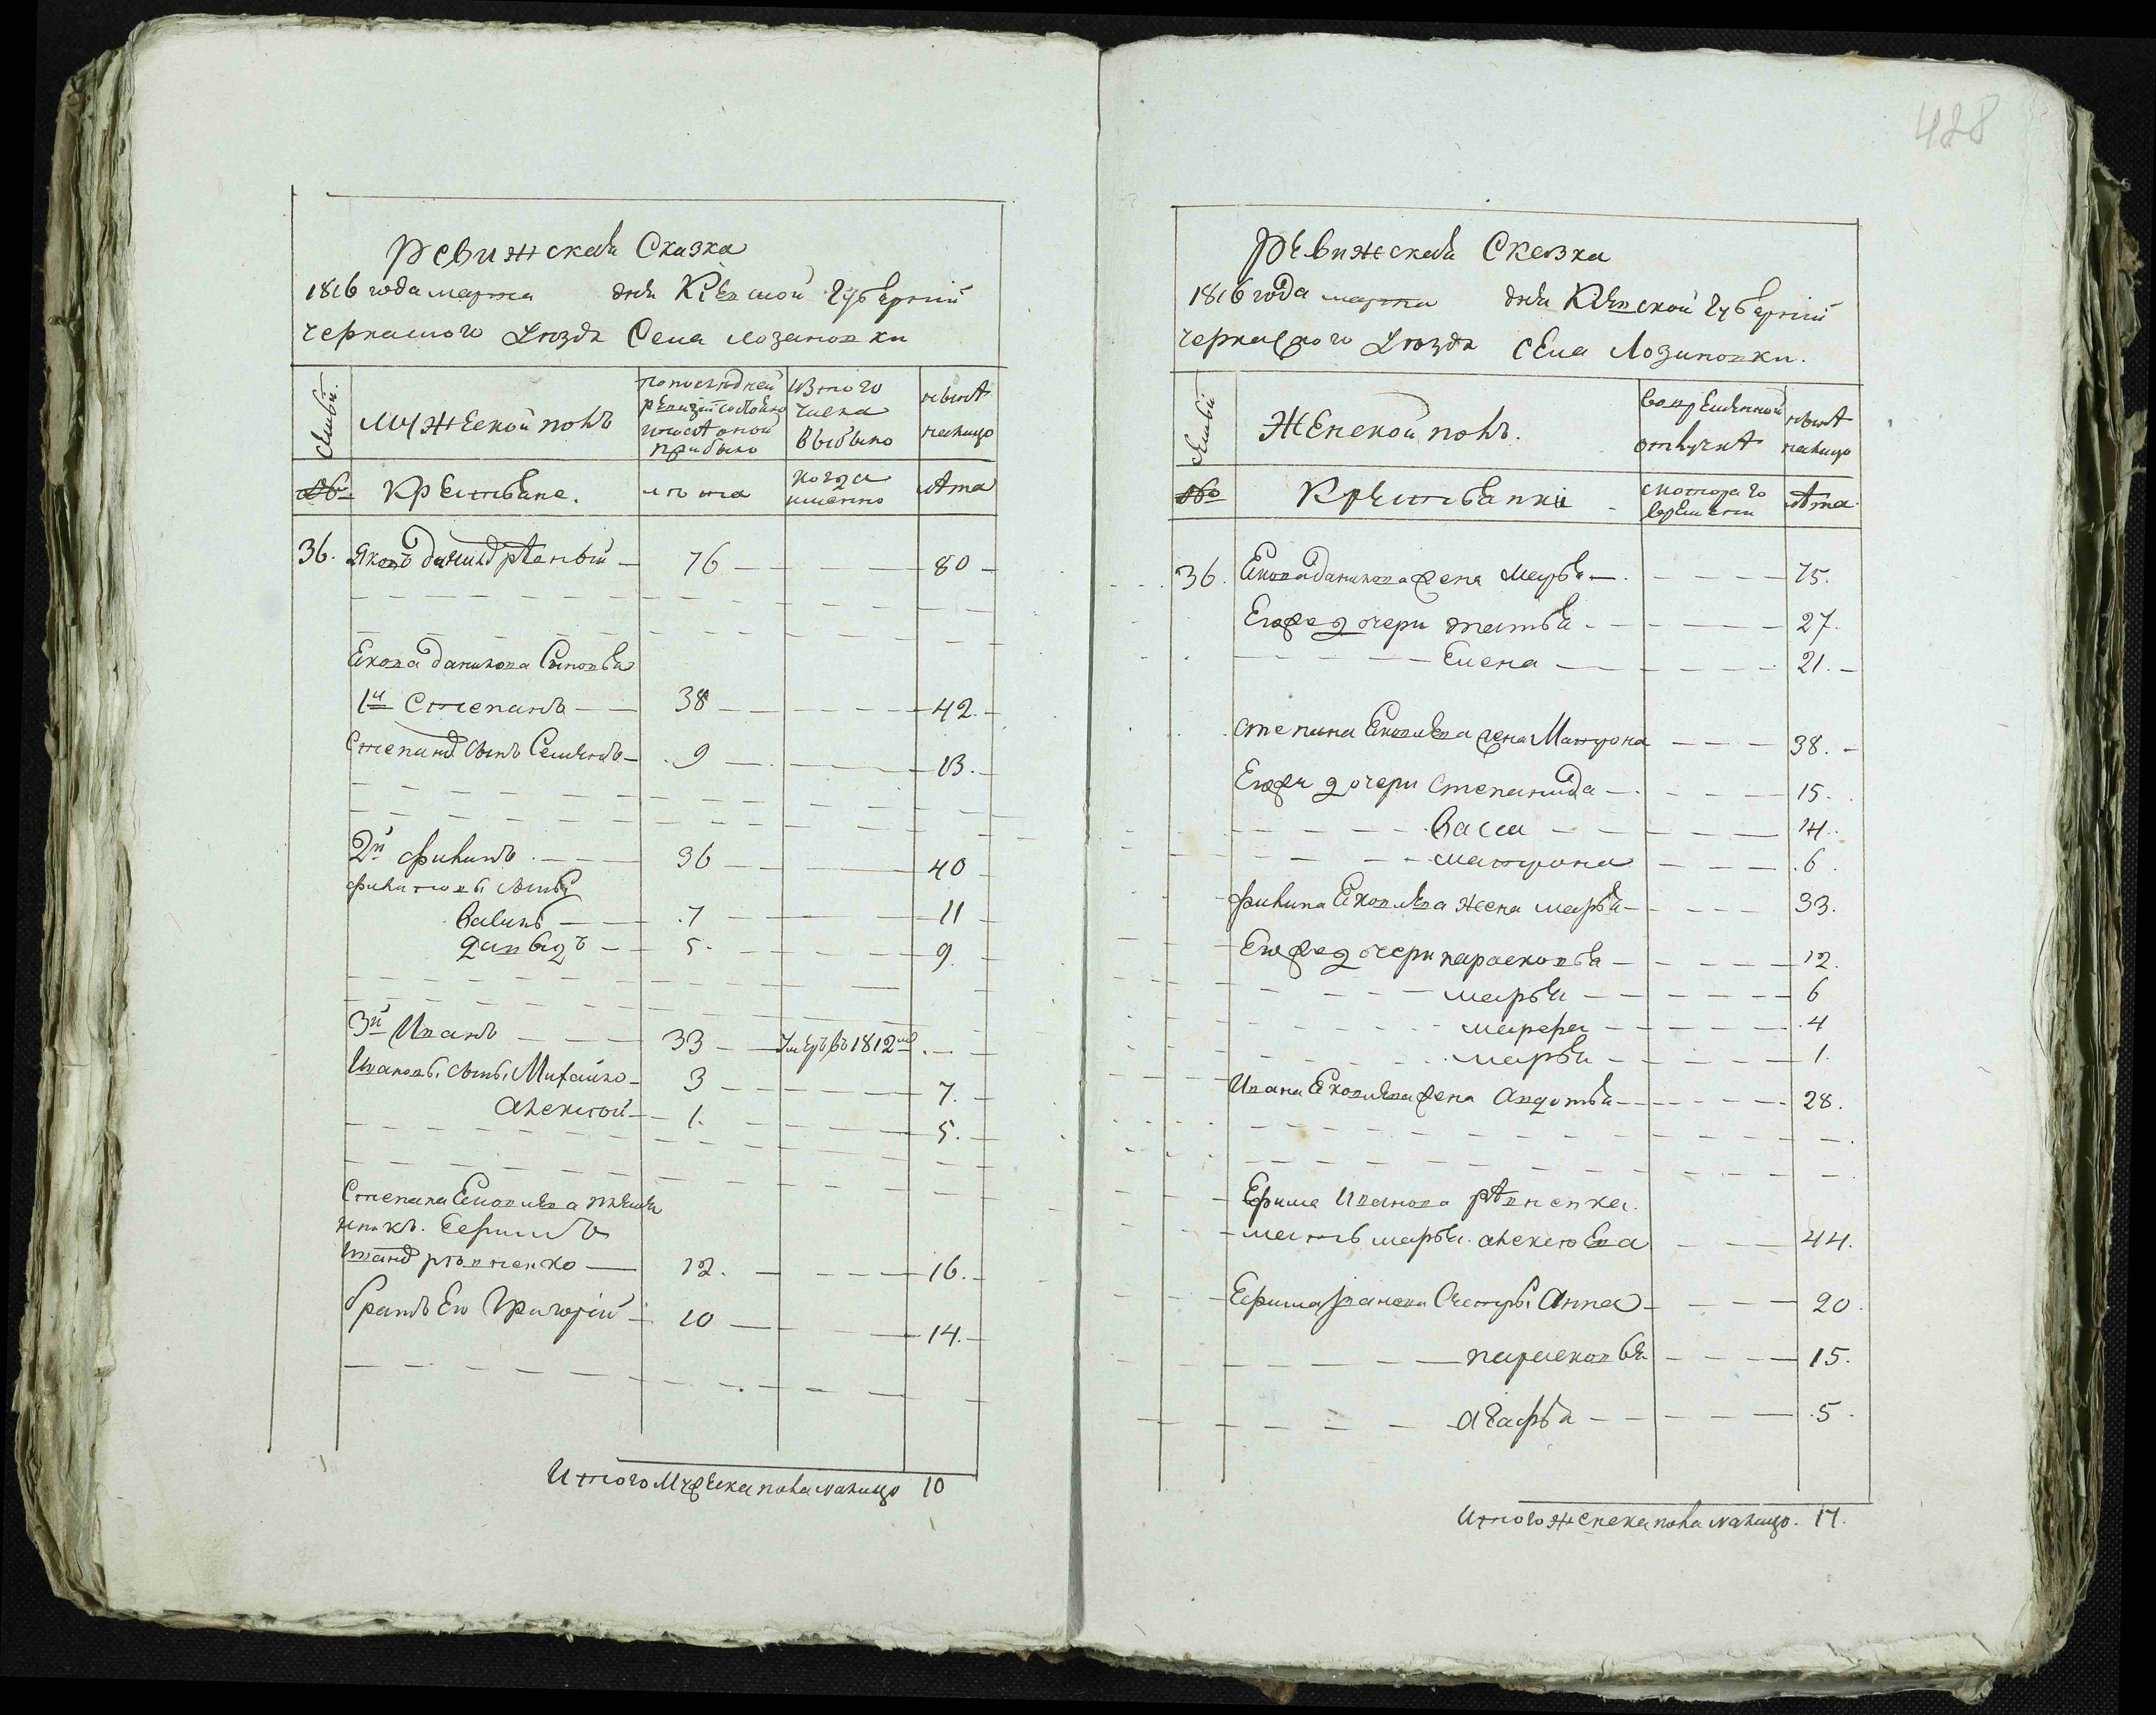 428
Ревижская Сказка
1816 года марта дня Кіевской Губерніи
черкаского уезда Села Лозановки
Семьи
Мужеской полъ
по последней ревизіи состояло и после оной прибыло
Изъ того числа выбыло
ныне налицо
№
Крестьяне.
лета
когда именно
лета
36. Яковъ данилъ 76 80
Якова данилова Сыновья
1й Степанъ 38 42.
Степана сынъ Семенъ 9 13.
2й филипъ 36 40
филиповы сыны
Василь 7 11
давидъ 5. 9.
3й Иванъ 33 Умеръ въ 1812м
Ивановы сыны Михайло 3 7.
Алексей 1. 5.
Степана Яковлева племя
никъ. Ефимъ
Иванъ 12. 16.
братъ Его Григорій 10 14.
Итого мужеска пола налицо 10
Ревижская Сказка
1816 года марта дня Кіевской Губерніи
черкаского уезда села Лозановки.
Семьи
Женской полъ.
во временной отлучке
ныне налицо
№
Крестьянки
с которого времени
лета
36. Якова данилова жена Марья 75.
Егоже дочери 27.
Елена 21.
степана Яковлева жена Матрона 38.
Егоже дочери Степанида 15.
Васса 14.
матрона 6.
филипа Яковлева жена марья 33.
Егоже дочери парасковья 12.
марья 6
4
марья 1.
Ивана Яковлева жена Авдотья 28.
Ефима Иванова
мать марья алексеева 44.
Ефима Иванова Сестры Анна 20.
парасковья 15.
агафья 5.
Итого женска пола налицо. 17.